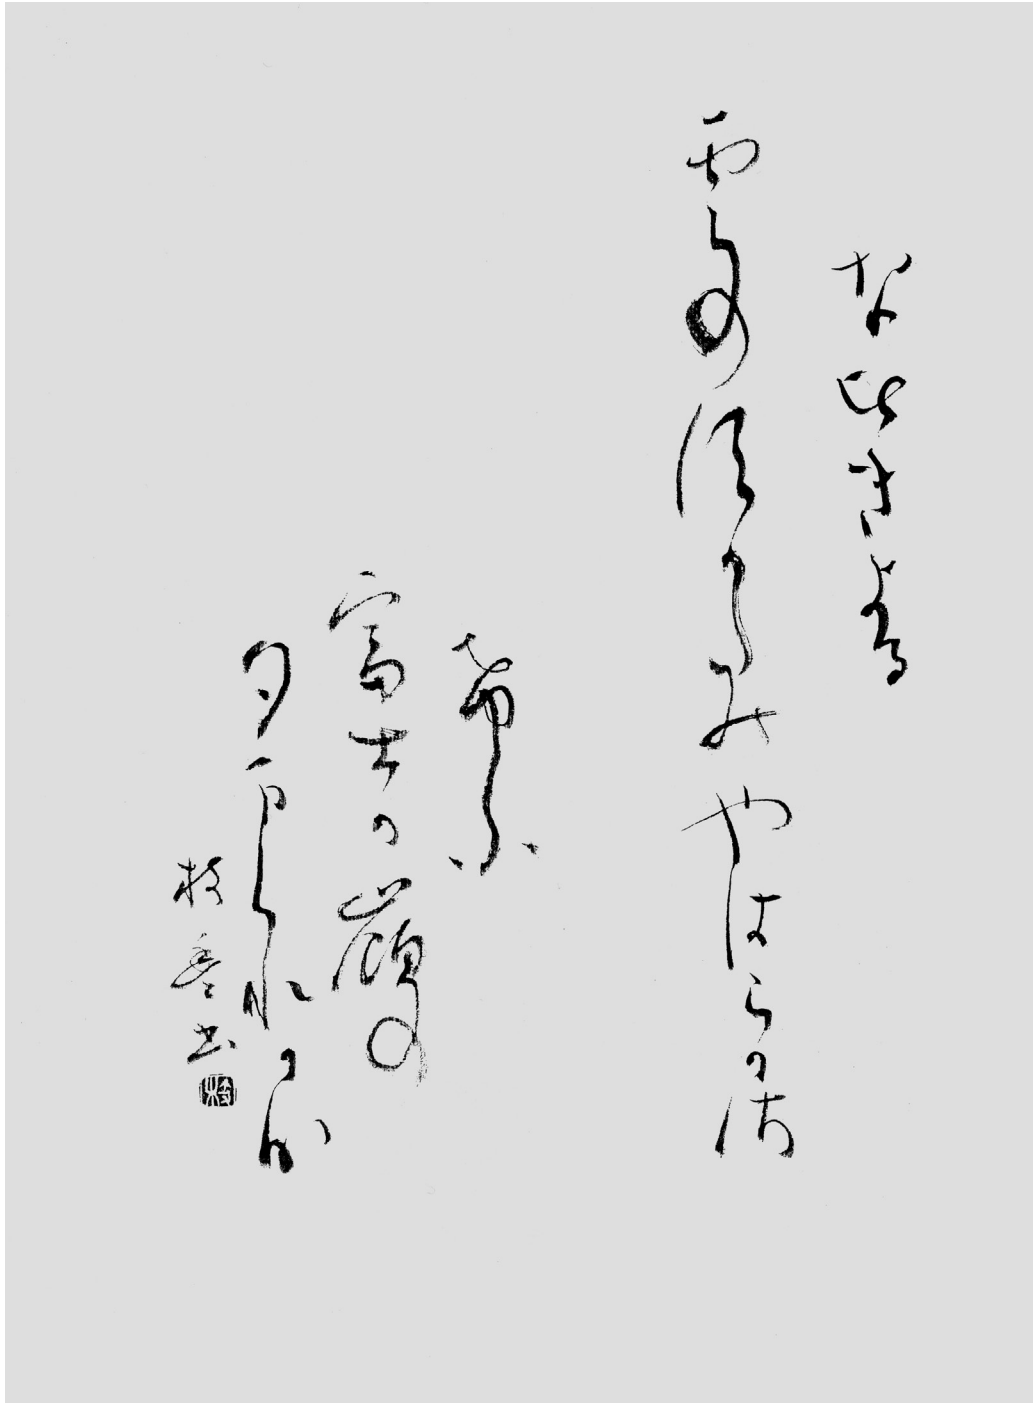 なひきよる
雲のすかたのやはらかき
けふ
富士か嶺の
夕まくれかな
枝 書